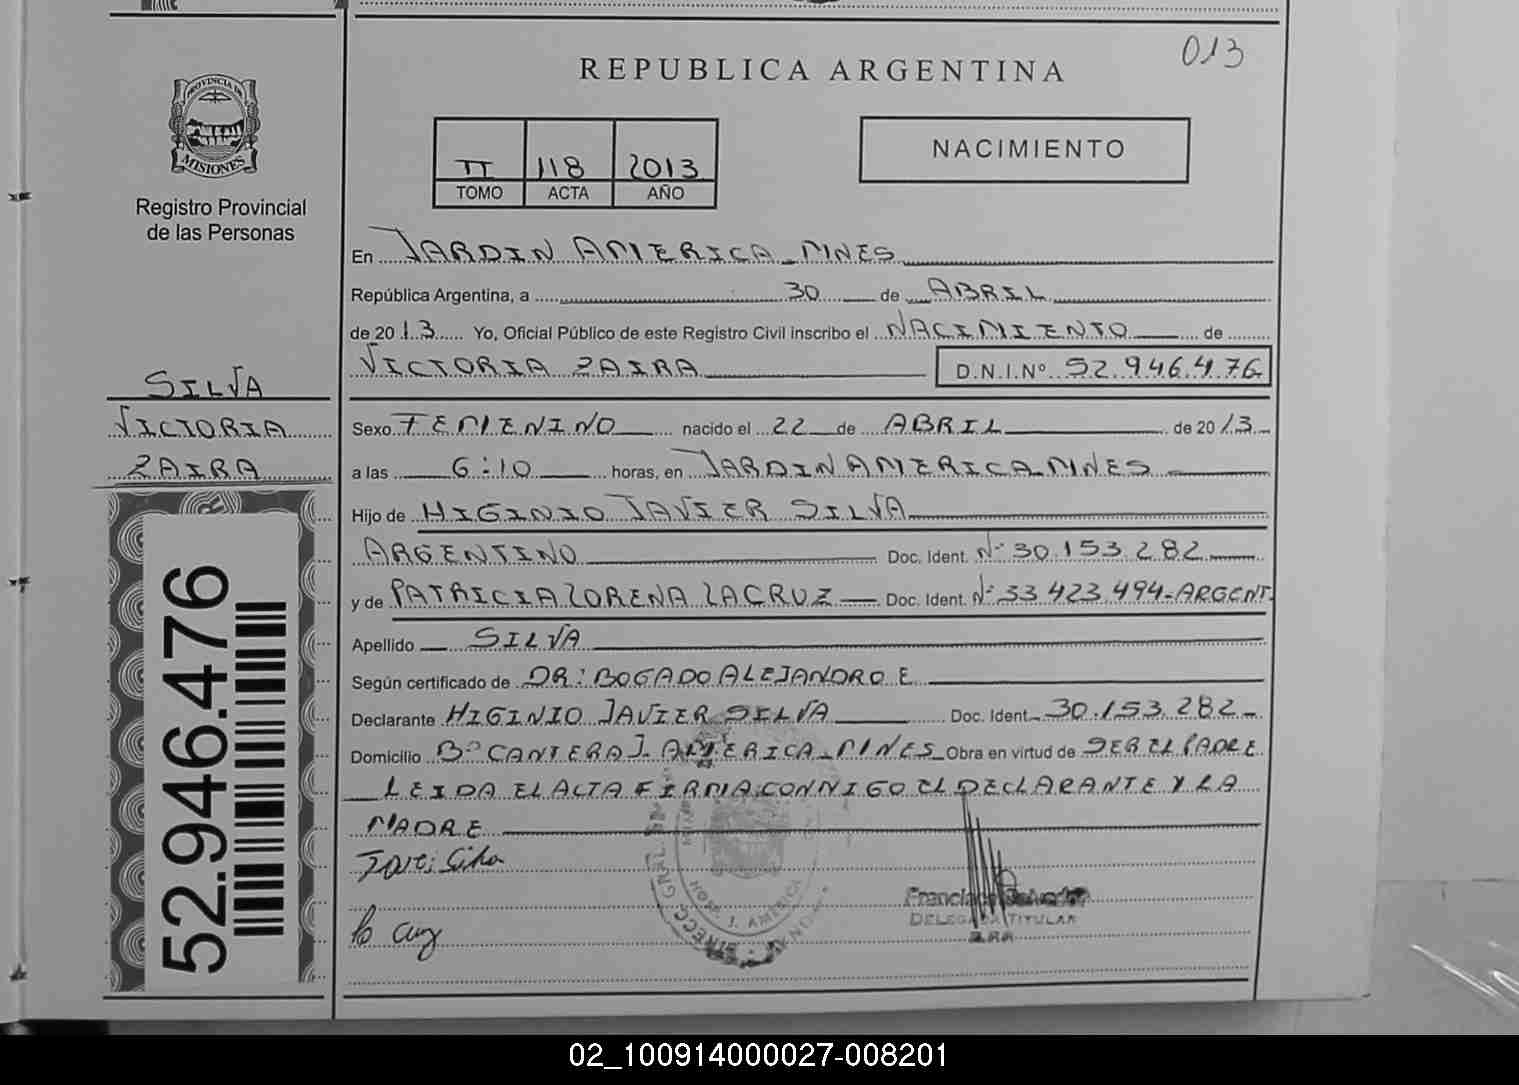 013
REPUBLICA ARGENTINA
PROVINCIA DE
MISIONES
Registro Provincial
de las Personas
II 118 2013
TOMO ACTA AÑO
NACIMIENTO
En JARDIN AMERICA - MNES
República Argentina, a 30 de ABRIL
de 2013 Yo, Oficial Público de este Registro Civil inscribo el NACIMIENTO de
VICTORIA ZAIRA D.N.I.Nº 52.946.476
SILVA
VICTORIA
ZAIRA
52.946.476
Sexo FEMENINO nacido el 22 de ABRIL de 2013
a las 6:10 horas, en JARDIN AMERICA MNES
Hijo de HIGINIO JAVIER SILVA
ARGENTINO Doc. Ident. Nº 30.153.282
y de PATRICIA LORENA LACRUZ Doc. Ident. Nº 33.423.494-ARGENT.
Apellido SILVA
Según certificado de DR: BOGADO ALEJANDRO E
Declarante HIGINIO JAVIER SILVA Doc. Ident. 30.153.282-
Domicilio Bº CANTERA J. AMERICA - MNES Obra en virtud de SER EL PADRE
LEIDA EL ACTA FIRMA CONMIGO EL DECLARANTE Y LA
MADRE
HOSP. J. AMERICA
DIRECC. GRAL.
Francisca
DELEGADA TITULAR
02_100914000027-008201